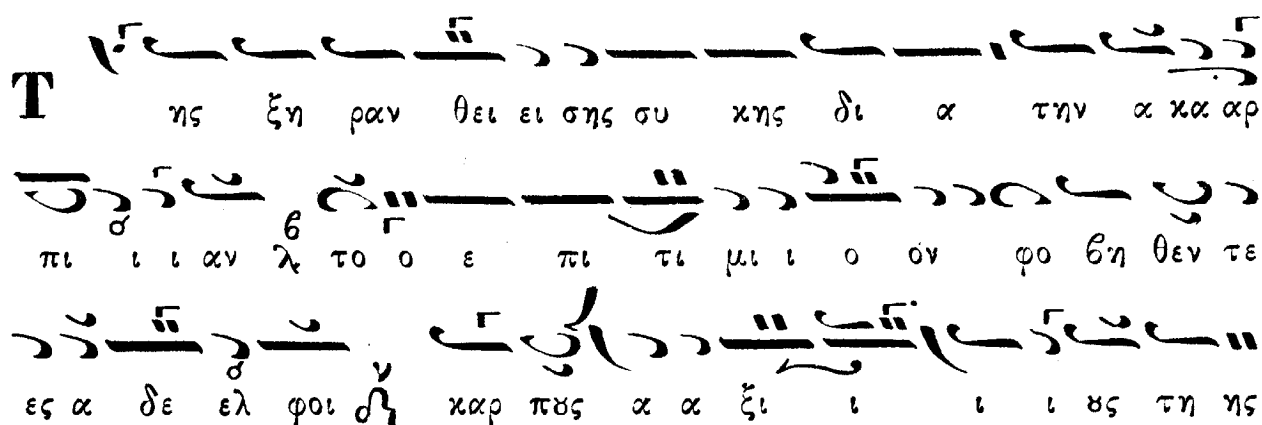 Τ ης ξη ραν θει ει σης συ κης δι α την α κα αρ
πι ι ι αν λ ϐ το ο ε πι τι μι ι ο ον φο ϐη θεν τε
ες α δε ελ φοι ν καρ πȣς α α ξι ι ι ι ȣς τη ης